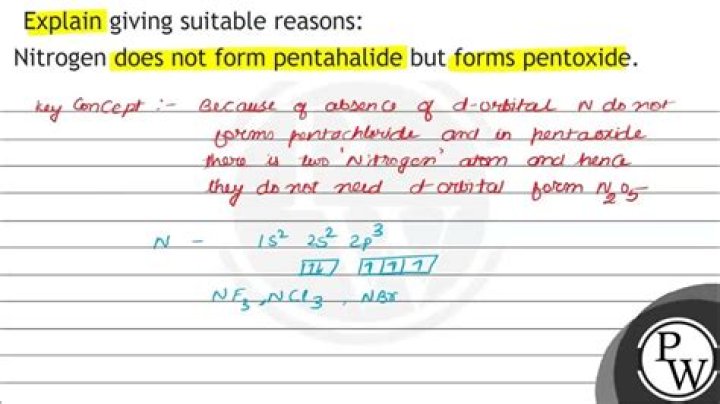 Explain giving suitable reasons:
Nitrogen does not form pentahalide but forms pentoxide.
Key Concept :- Because of absence of d-orbital N do not
forms pentachloride and in pentaoxide
there is two 'Nitrogen' atom and hence
they do not need d-orbital form N2O5-
N - 1s² 2s² 2p³
1↓ 1 1 1
NF3, NCl3, NBr
PW